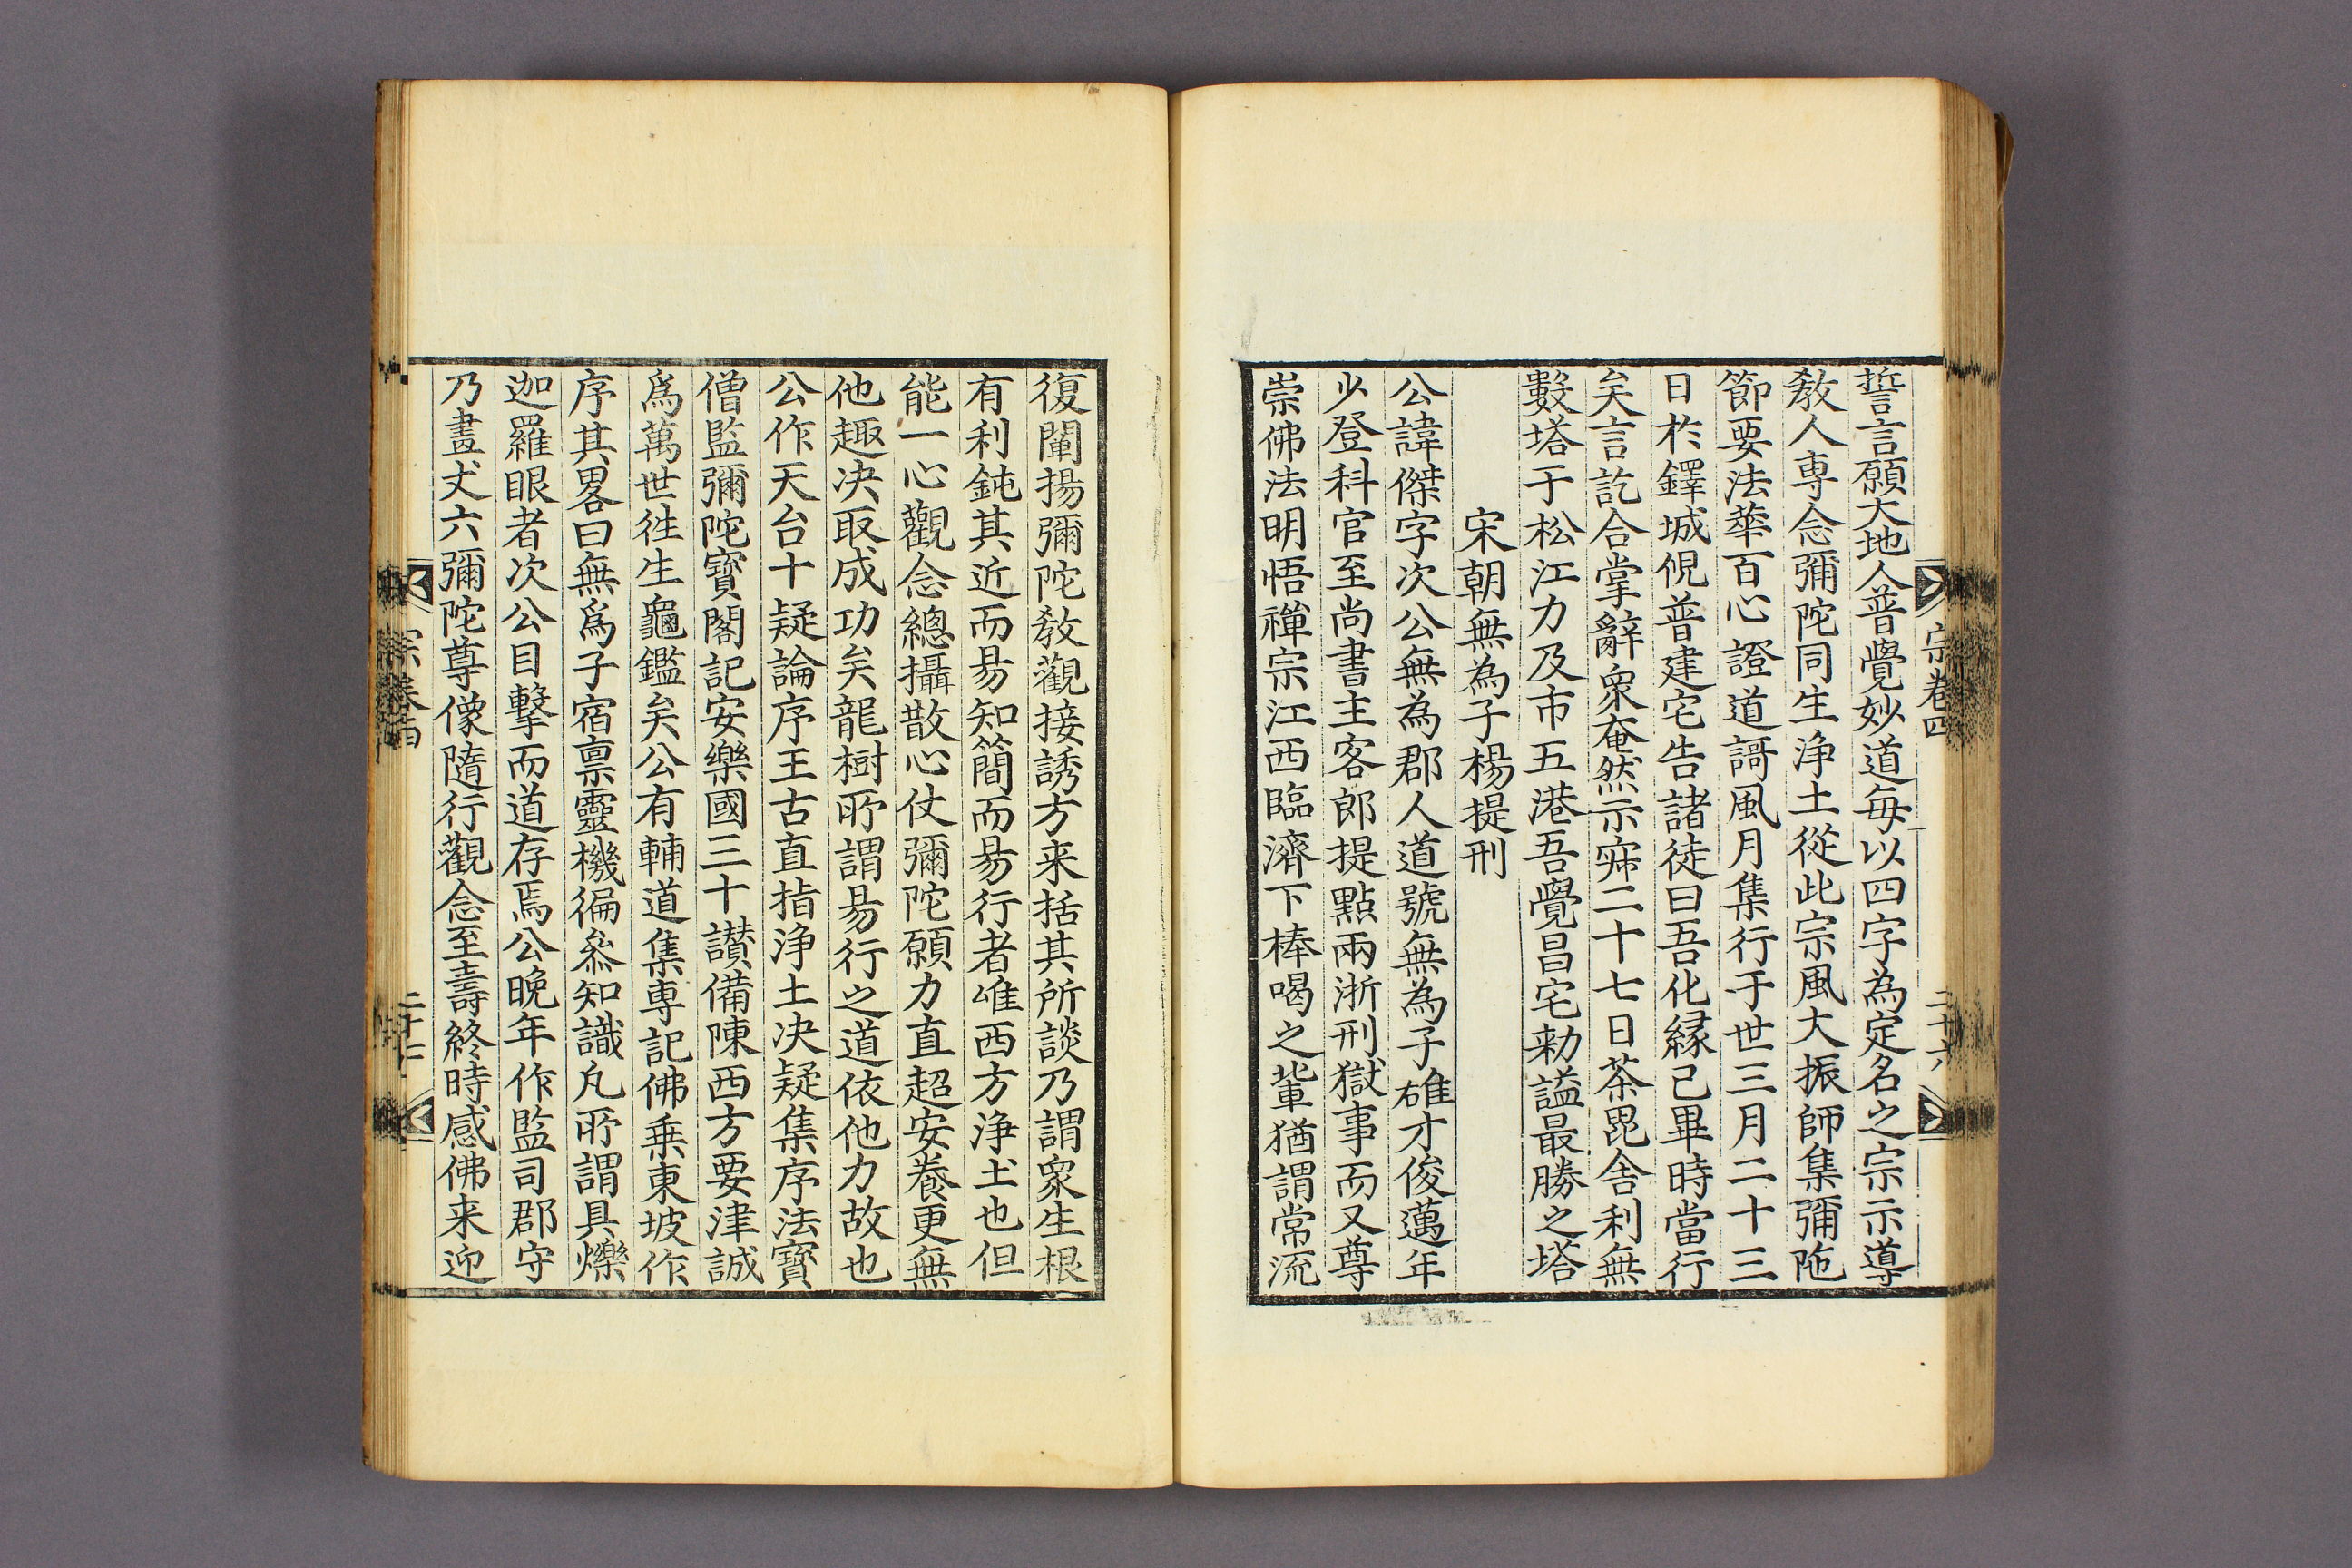 誓言願大地人普覺妙道每以四字為定名之宗示導
教人專念彌陀同生浄土從此宗風大振師集彌陁
節要法華百心證道謌風月集行于世三月二十三
日於鐸城倪普建宅告諸徒曰吾化縁已畢時當行
矣言訖合掌辭衆奄然示寂二十七日茶毘舍利無
數塔于松江力及市五港吾覺昌宅勑謚最勝之塔
宋朝無為子楊提刑
公諱傑字次公無為郡人道號無為子雄才俊邁年
少登科官至尚書主客郎提點兩浙刑獄事而又尊
崇佛法明悟禪宗江西臨濟下棒喝之軰猶謂常流
宗卷四
二十六
復闡揚彌陀教觀接誘方来括其所談乃謂衆生根
有利鈍其近而易知簡而易行者唯西方浄土也但
能一心觀念總攝散心仗彌陀願力直超安養更無
他趣决取成功矣龍樹所謂易行之道依他力故也
公作天台十疑論序王古直指浄土决疑集序法寳
僧監彌陀寳閣記安樂國三十讃備陳西方要津誠
爲萬世徃生龜鑑矣公有輔道集専記佛乗東坡作
序其畧曰無爲子宿禀靈機徧叅知識凡所謂具爍
迦羅眼者次公目擊而道存焉公晚年作監司郡守
乃畫丈六彌陀尊像隨行觀念至壽終時感佛来迎